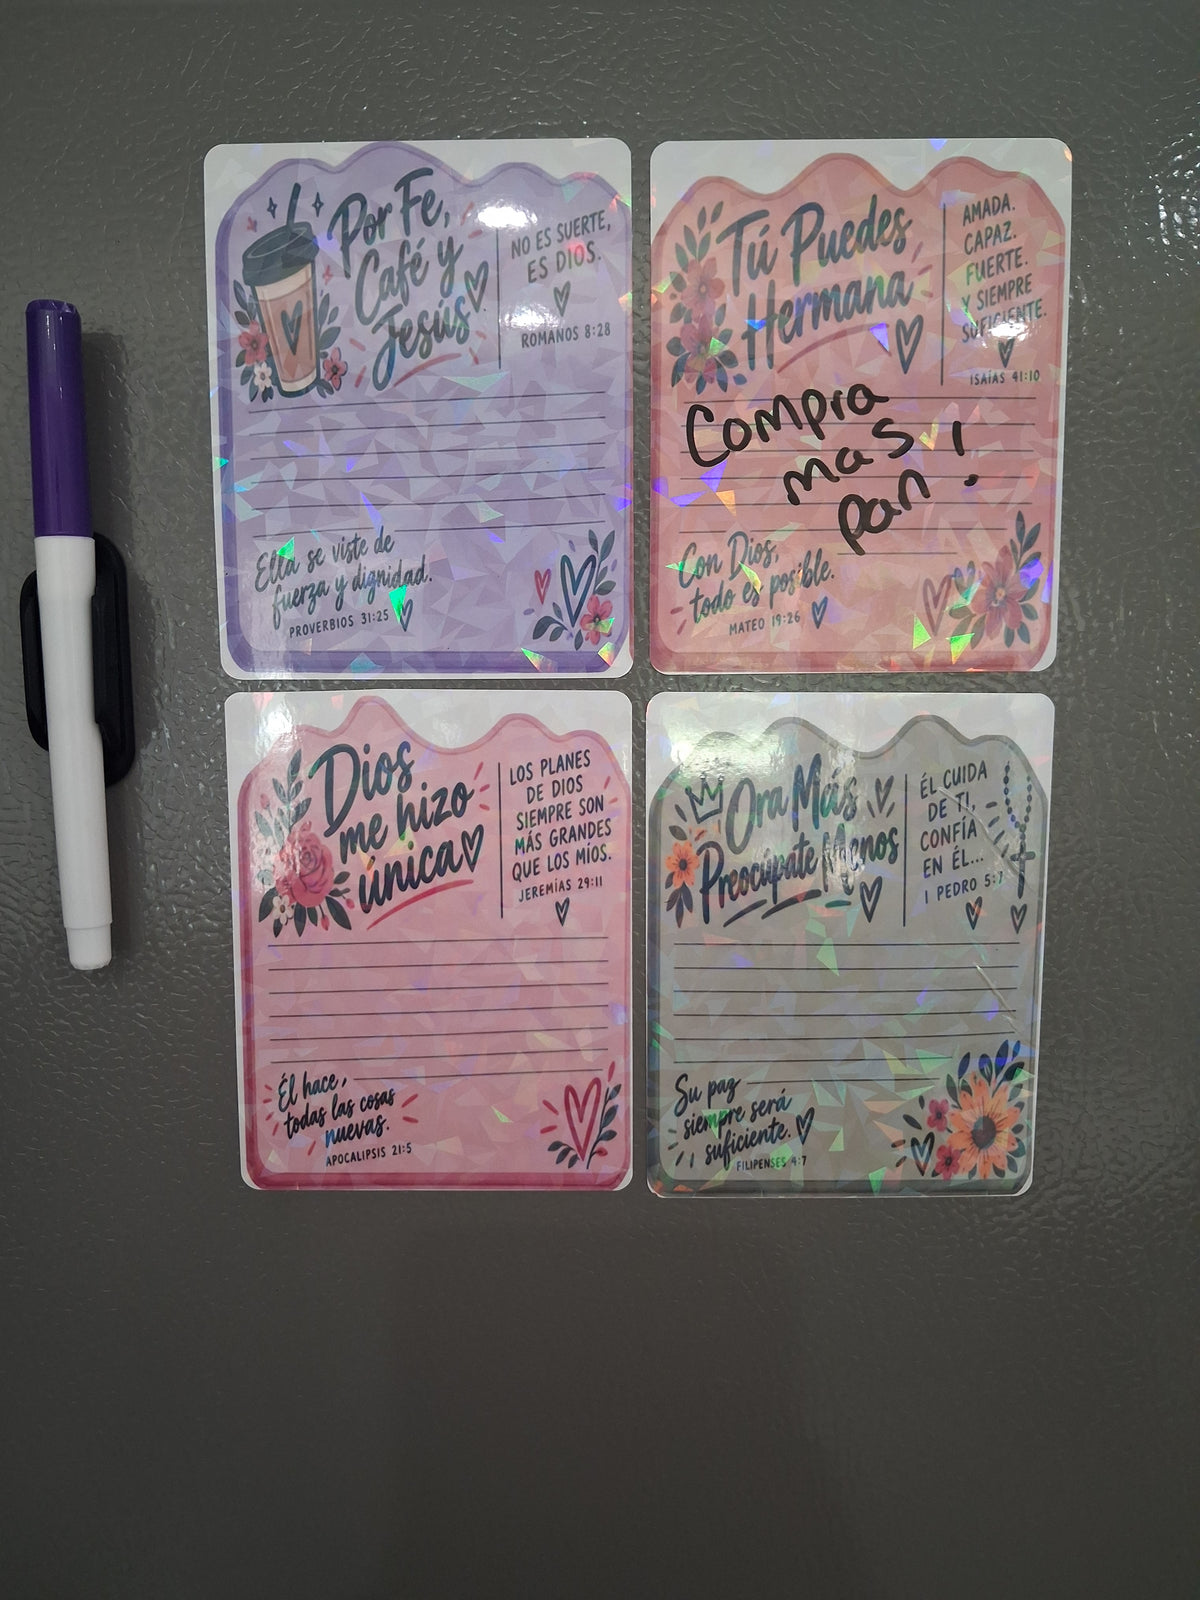 Por Fe,
Café y
Jesús
NO ES SUERTE,
ES DIOS.
ROMANOS 8:28
Ella se viste de
fuerza y dignidad.
PROVERBIOS 31:25
Tú Puedes
Hermana
AMADA.
CAPAZ.
FUERTE.
Y SIEMPRE
SUFICIENTE.
ISAÍAS 41:10
Compra
mas
pan!
Con Dios,
todo es posible.
MATEO 19:26
Dios
me hizo
única
LOS PLANES
DE DIOS
SIEMPRE SON
MÁS GRANDES
QUE LOS MÍOS.
JEREMÍAS 29:11
Él hace,
todas las cosas
nuevas.
APOCALIPSIS 21:5
Ora Más
Preocúpate Menos
ÉL CUIDA
DE TI,
CONFÍA
EN ÉL...
1 PEDRO 5:7
Su paz
siempre será
suficiente.
FILIPENSES 4:7